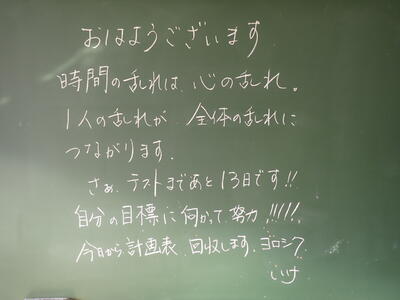 おはようございます
時間の乱れは、心の乱れ。
1人の乱れが 全体の乱れに
つながります.
さぁ、テストまであと13日です!!
自分の目標に向かって努力!!!!!
今日から計画表 回収します、ヨロシク.